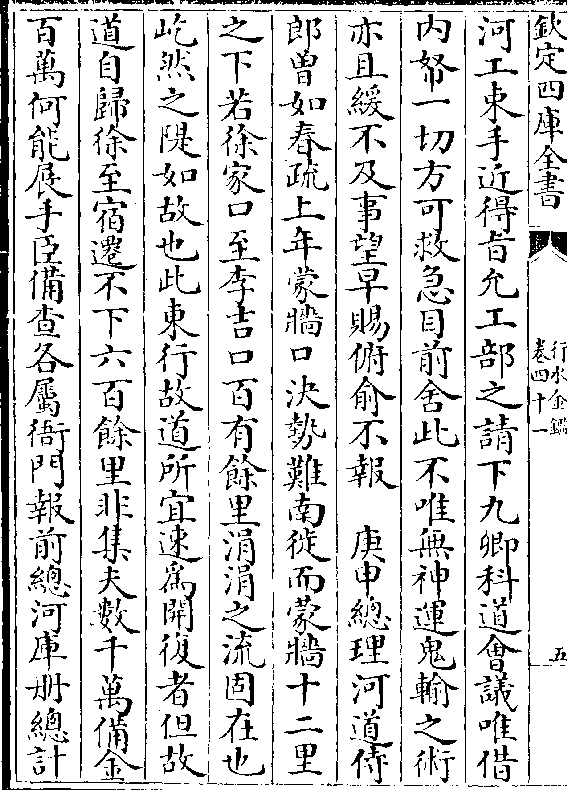 欽定四庫全書
行水金鑑
卷四十一
五
河工束手近得旨允工部之請下九卿科道會議唯借
内帑一切方可救急目前舍此不唯無神運鬼輸之術
亦且緩不及事望早賜俯俞不報　庚申總理河道侍
郎曾如春疏上年蒙牆口決勢難南徙而蒙牆十二里
之下若徐家口至李吉口百有餘里涓涓之流固在也
屹然之隄如故也此東行故道所宜速為開復者但故
道自歸徐至宿遷不下六百餘里非集夫數千萬備金
百萬何能展手臣備查各屬衙門報前總河庫册總計